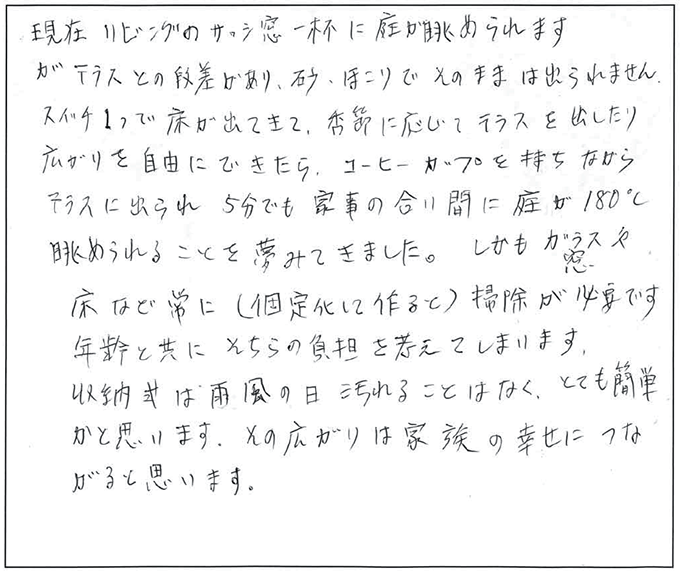 現在 リビングのサッシ窓一杯に庭が眺められます
がテラスとの段差があり、砂・ほこりでそのままは出られません。
スイッチ1つで床が出てきて、季節に応じてテラスを出したり
広がりを自由にできたら、コーヒーカップを持ちながら
テラスに出られ 5分でも家事の合い間に庭が180℃
眺められることを夢みてきました。しかもガラスや窓
床など常に(個定化して作ると)掃除が必要です
年齢と共にそちらの負担を考えてしまいます。
収納式は雨風の日汚れることはなく、とても簡単
かと思います。その広がりは家族の幸せにつな
がると思います。